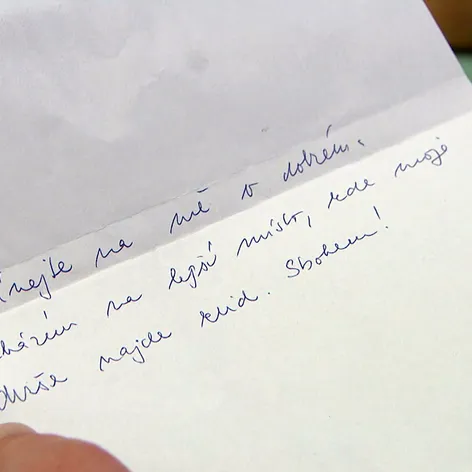 na mě v dobrém.
na lepší místo, kde moje
duše najde klid. Sbohem!